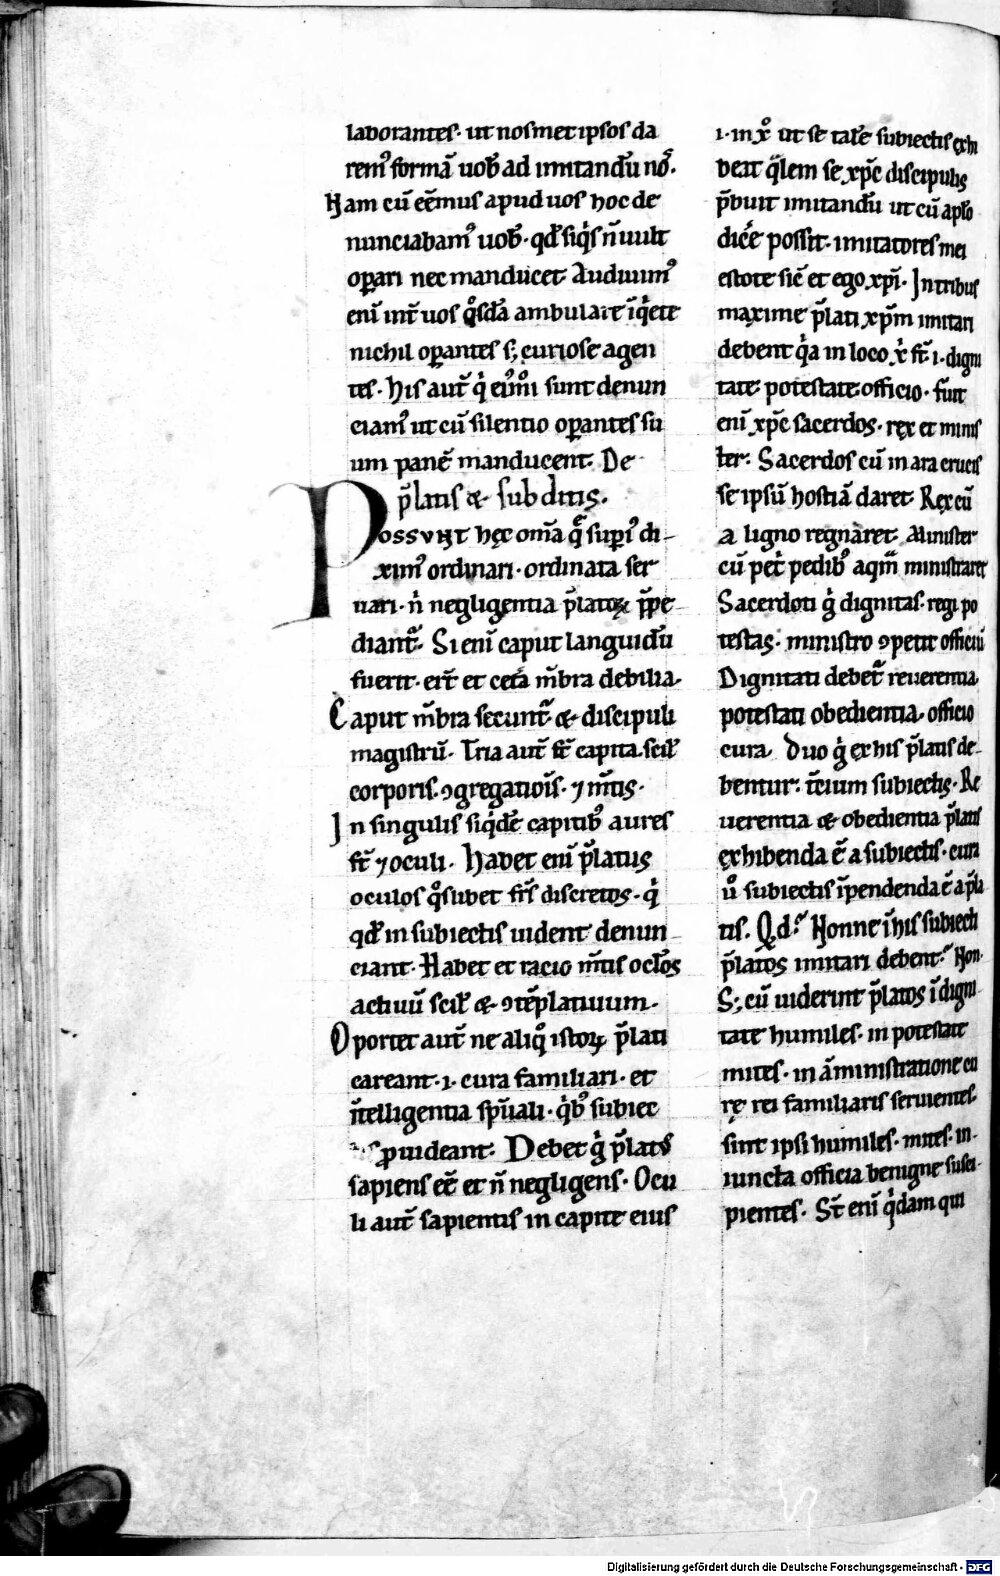 laborantes. ut nosmet ipsos da
rem᷒ formā uob̄ ad imitandū nō.
Nam cū eēmus apud uos hoc de
nunciabam᷒ uob̄. qd̄ siq̇s n̄ uult
oꝑari nec manducet. Audiuim᷒
enī int̄ uos q̊sdā ambulare īq̇ete
nichil oꝑantes s; curiose agen
tes. His aut̄ q̇ ei᷒moͥ sunt denun
ciam᷒ ut cū silentio oꝑantes su
um panē manducent. De
p̄latis & subditis.
Possunt hęc om̄a q̄ suꝑi᷒ di
xim᷒ ordinari. ordinata ser
uari. ni̇ negligentia p̄latoꝝ p̄pe
diant᷑. Si enī caput languidū
fuerit. er̄t et cetā m̄bra debilia.
Caput m̄bra secunt᷑ & discipuli
magistrū. Tria aut̄ st̄ capita. scil̄
corporis. ꝯgregatiōis. ⁊ m̄tis.
In singulis siq̇dē capitib᷒ aures
st̄ ⁊ oculi. Habet enī p̄latus
oculos q̊s iubet fr̄s discretos. q̇
qd̄ in subiectis uident denun
ciant. Habet et racio m̄tis oclōs
actiuū scil̄ & ꝯtēplatiuum.
Oportet aut̄ ne aliq̊ istoꝝ p̄lati
careant. i. cura familiari. et
īntelligentia sp̄uali. q̇b᷒ subiec
tis ꝓuideant. Debet g̊ p̄lat᷒
sapiens eē et n̄ negligens. Ocu
li aut̄ sapientis in capite eius
i. in xo᷒ ut se talē subiectis exhi
beat q̄lem se xp̄c discipulis
p̄buit imitandū ut cū apl̄o
dicē possit. imitatores mei
estote sic̄ et ego xp̄i. In tribus
maxime p̄lati xp̄m imitari
debent q̇a in loco xi̇ st̄. i. digni
tate potestate officio. fuit
enī xp̄c sacerdos. rex et minis
ter. Sacerdos cū in ara crucis
se ipsū hostiā daret. Rex cū
a ligno regnaret. Minister
cū pet̄ pedib᷒ aqm̄ ministraret
Sacerdoti g̊ dignitas. regi po
testas. ministro ꝯpetit officiū
Dignitati debet᷑ reuerentia
potestati obedientia. officio
cura. Duo g̊ ex his p̄latis de
bentur: t̄cium subiectis. Re
uerentia & obedientia p̄latis
exhibenda ē a subiectis. cura
ů subiectis īpendenda ē a p̄la
tis. Qd.? Nonne ī his subiecti
p̄latos imitari debent? Non.
S; cū uiderint p̄latos ī digni
tate humiles. in potestate
mites. in āministratione cu
rę rei familiaris seruientes.
sint ipsi humiles. mites. in
iuncta officia benigne susci
pientes. St̄ enī q̇dam qui
Digitalisierung gefördert durch die Deutsche Forschungsgemeinschaft - DFG